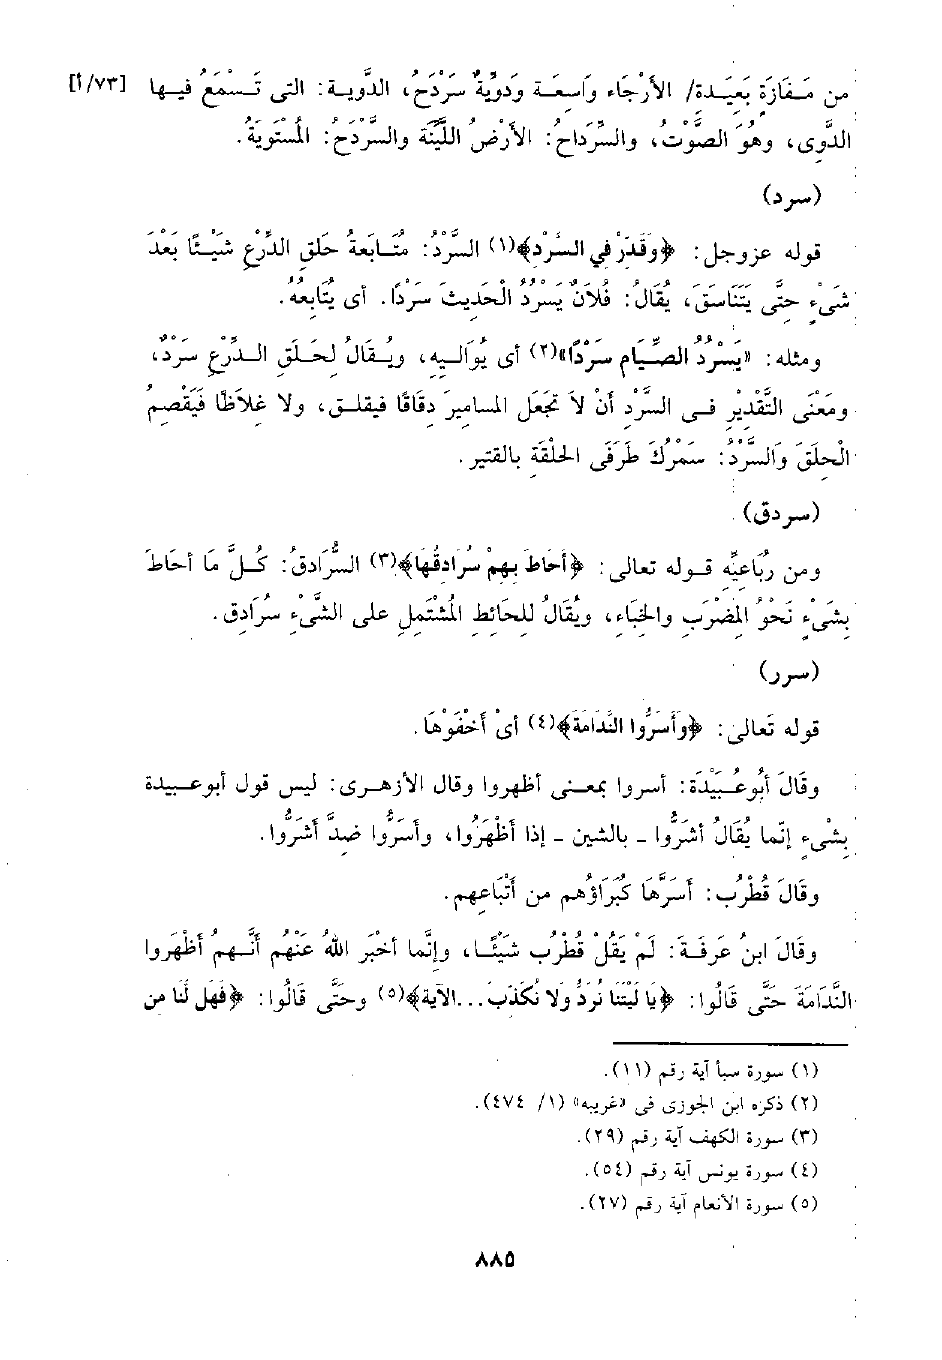 من مَفَازَة بَعيدة/ الأرْجَاء وَاسعَة ودَوِيَّةٌ سَرْدَحٌ، الدَّوية: التى تَسْمَعُ فيها [٧٣/أ]
الدَّوى، وهُوَ الصَّوْتُ، والسِّرْدَاحُ: الأرْضُ اللَّيِّنَة والسَّرْدَحُ: المُسْتَوِيَةُ.
(سرد)
قوله عزوجل: ﴿وَقَدِّرْ فِي السَّرْدِ﴾(١) السَّرْدُ: مُتَابَعةُ حلَقِ الدِّرْعِ شَيْئًا بَعْدَ
شَىْءٍ حتَّى يَتَنَاسَقَ، يُقَالُ: فُلاَنٌ يَسْرُدُ الْحَدِيثَ سَرْدًا. أى يُتَابِعُهُ.
ومثله: «يَسْرُدُ الصِّيَام سَرْدًا»(٢) أى يُوَالِيهِ، ويُقَالُ لحَلَقِ الدِّرْعِ سَرْدٌ،
ومَعْنَى التَّقْدِيرِ فى السَّرْدِ أنْ لاَ تَجْعَل المساميرَ دِقَاقًا فيقلق، ولا غِلاَظًا فَيَقْصِمُ
الْحِلَقَ وَالسَّرْدُ: سَمْرُكَ طَرَفَى الحَلْقَةِ بالقتير.
(سردق)
ومن رُبَاعيِّه قوله تعالى: ﴿أَحَاطَ بِهِمْ سُرَادِقُهَا﴾(٣) السُّرَادِقُ: كُلُّ مَا أحَاطَ
بِشَىْءٍ نَحْوُ المِضْرَبِ والخِبَاءِ، ويُقَالُ للحَائِطِ المُشْتَمِلِ على الشَّىْءِ سُرَادِق.
(سرر)
قوله تَعالَى: ﴿وَأَسَرُّوا النَّدَامَةَ﴾(٤) أىْ أخْفَوْهَا.
وقَالَ أبُوعُبَيْدَة: أسروا بمعنى أظهروا وقال الأزهرى: ليس قول أبوعبيدة
بِشْىءٍ إنّما يُقَالُ أشَرُّوا - بالشين - إذا أظْهَرُوا، وأسَرُّوا ضِدَّ أشَرُّوا.
وقَالَ قُطْرُب: أسَرَّهَا كُبَرَاؤُهم من أتْبَاعِهِم.
وقَالَ ابنُ عَرَفَةَ: لَمْ يَقُلْ قُطْرُب شَيْئًا، وإنَّما أخْبَر اللهُ عَنْهُم أنَّهم أظْهَروا
النَّدَامَةَ حَتَّى قَالُوا: ﴿يَا لَيْتَنَا نُرَدُّ وَلاَ نُكَذِّبَ...الآية﴾(٥) وحَتَّى قَالُوا: ﴿فَهَل لَنَا مِن
(١) سورة سبأ آية رقم (١١).
(٢) ذكره ابن الجوزى فى «غريبه» (١/ ٤٧٤).
(٣) سورة الكهف آية رقم (٢٩).
(٤) سورة يونس آية رقم (٥٤).
(٥) سورة الأنعام آية رقم (٢٧).
٨٨٥